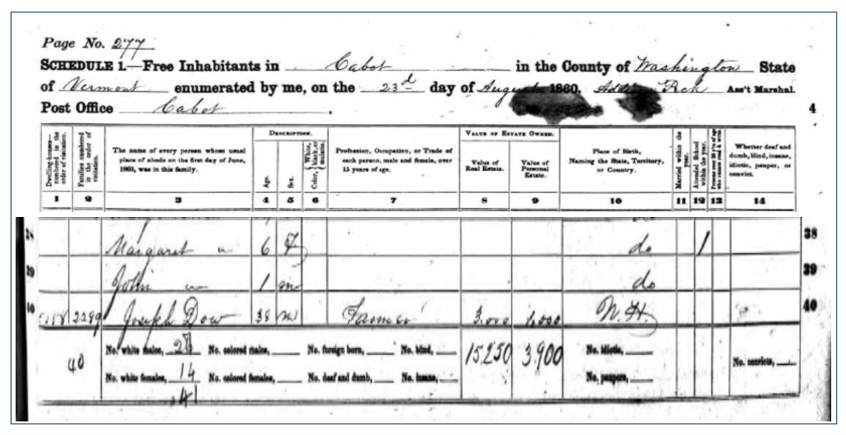 Page No. 277
SCHEDULE 1.—Free Inhabitants in Cabot in the County of Washington State
of Vermont enumerated by me, on the 23d day of August 1860. Ass't Marshal.
Post Office Cabot 4
DESCRIPTION. VALUE OF ESTATE OWNED.
Dwelling-houses—numbered in the order of visitation.
Families numbered in the order of visitation.
The name of every person whose usual place of abode on the first day of June, 1860, was in this family.
Age.
Sex.
Color, White, black, or mulatto.
Profession, Occupation, or Trade of each person, male and female, over 15 years of age.
Value of Real Estate.
Value of Personal Estate.
Place of Birth, Naming the State, Territory, or Country.
Married within the year.
Attended School within the year.
Whether deaf and dumb, blind, insane, idiotic, pauper, or convict.
1 2 3 4 5 6 7 8 9 10 11 12 13 14
38 Margaret " 6 F do 1 38
39 John " 1 m do 39
40 2299 Joseph Dow 38 M Farmer 3,000 1,000 N.H. 40
40 No. white males, No. colored males, No. foreign born, No. blind, 15250 3900 No. idiotic, No. convicts,
No. white females, 14 No. colored females, No. deaf and dumb, No. insane, No. paupers,
41